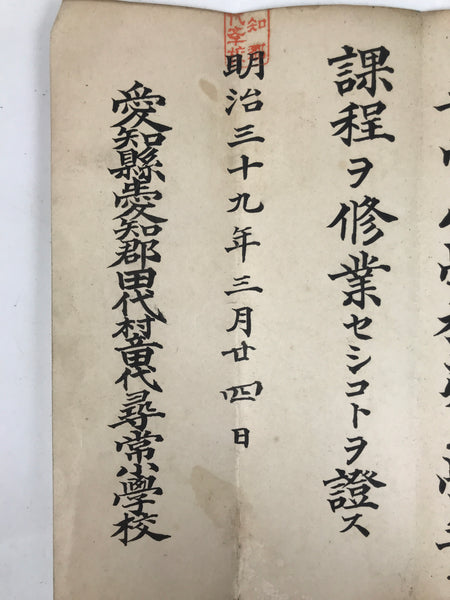 課程ヲ修業セシコトヲ證ス
明治三十九年三月廿四日
愛知縣愛知郡田代村立田代尋常小學校